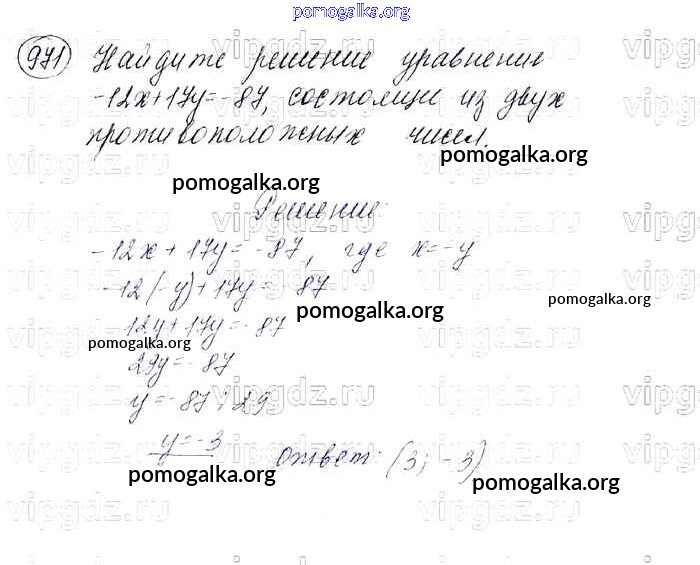 pomogalka.org
971 Найдите решение уравнение
-12x+17y=-87, состоящи из двух
противоположных чисел.
pomogalka.org
pomogalka.org
Решение:
-12x+17y=-87, где x=-y
-12(-y)+17y= 87
pomogalka.org
pomogalka.org
12y+17y=-87
pomogalka.org
29y=-87
y=-87:29
y=-3 ответ: (3; -3)
pomogalka.org
pomogalka.org
vipgdz.ru